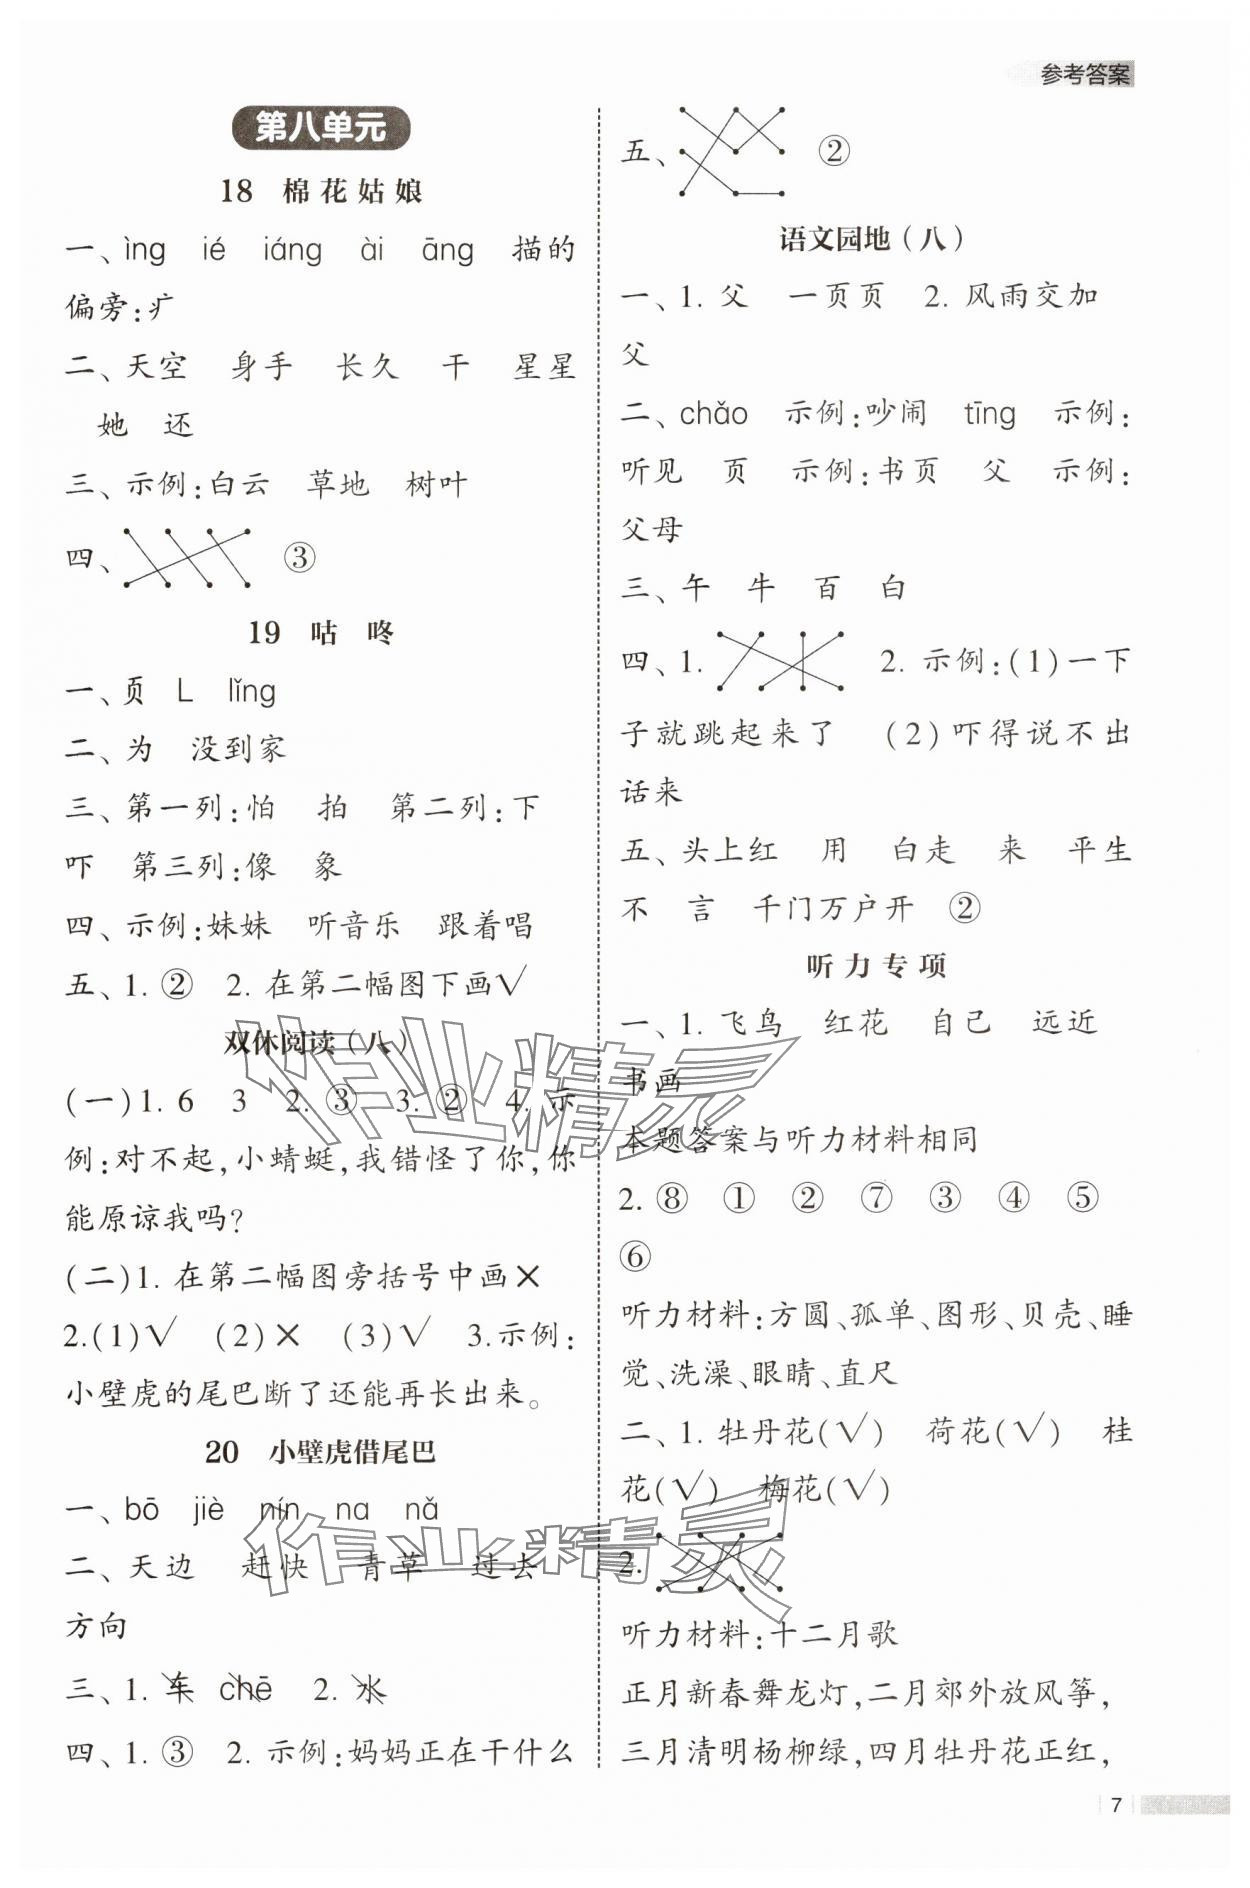 参考答案
第八单元
18 棉花姑娘
一、ìng ié iáng ài āng 描的
偏旁:疒
二、天空 身手 长久 干 星星
她 还
三、示例:白云 草地 树叶
四、 ③
19 咕咚
一、页 L lǐng
二、为 没到家
三、第一列:怕 拍 第二列:下
吓 第三列:像 象
四、示例:妹妹 听音乐 跟着唱
五、1. ② 2. 在第二幅图下画√
双休阅读(八)
(一)1. 6 3 2. ③ 3. ② 4. 示
例:对不起,小蜻蜓,我错怪了你,你
能原谅我吗?
(二)1. 在第二幅图旁括号中画×
2.(1)√ (2)× (3)√ 3.示例:
小壁虎的尾巴断了还能再长出来。
20 小壁虎借尾巴
一、bō jiè nín na nǎ
二、天边 赶快 青草 过去
方向
三、1. 车 chē 2. 水
四、1. ③ 2. 示例:妈妈正在干什么
五、 ②
语文园地(八)
一、1. 父 一页页 2. 风雨交加
父
二、chǎo 示例:吵闹 tīng 示例:
听见 页 示例:书页 父 示例:
父母
三、午 牛 百 白
四、1. 2. 示例:(1)一下
子就跳起来了 (2)吓得说不出
话来
五、头上红 用 白走 来 平生
不 言 千门万户开 ②
听力专项
一、1. 飞鸟 红花 自己 远近
书画
本题答案与听力材料相同
2. ⑧ ① ② ⑦ ③ ④ ⑤
⑥
听力材料:方圆、孤单、图形、贝壳、睡
觉、洗澡、眼睛、直尺
二、1. 牡丹花(√) 荷花(√) 桂
花(√) 梅花(√)
2.
听力材料:十二月歌
正月新春舞龙灯,二月郊外放风筝,
三月清明杨柳绿,四月牡丹花正红,
7
作业精灵
作业精灵